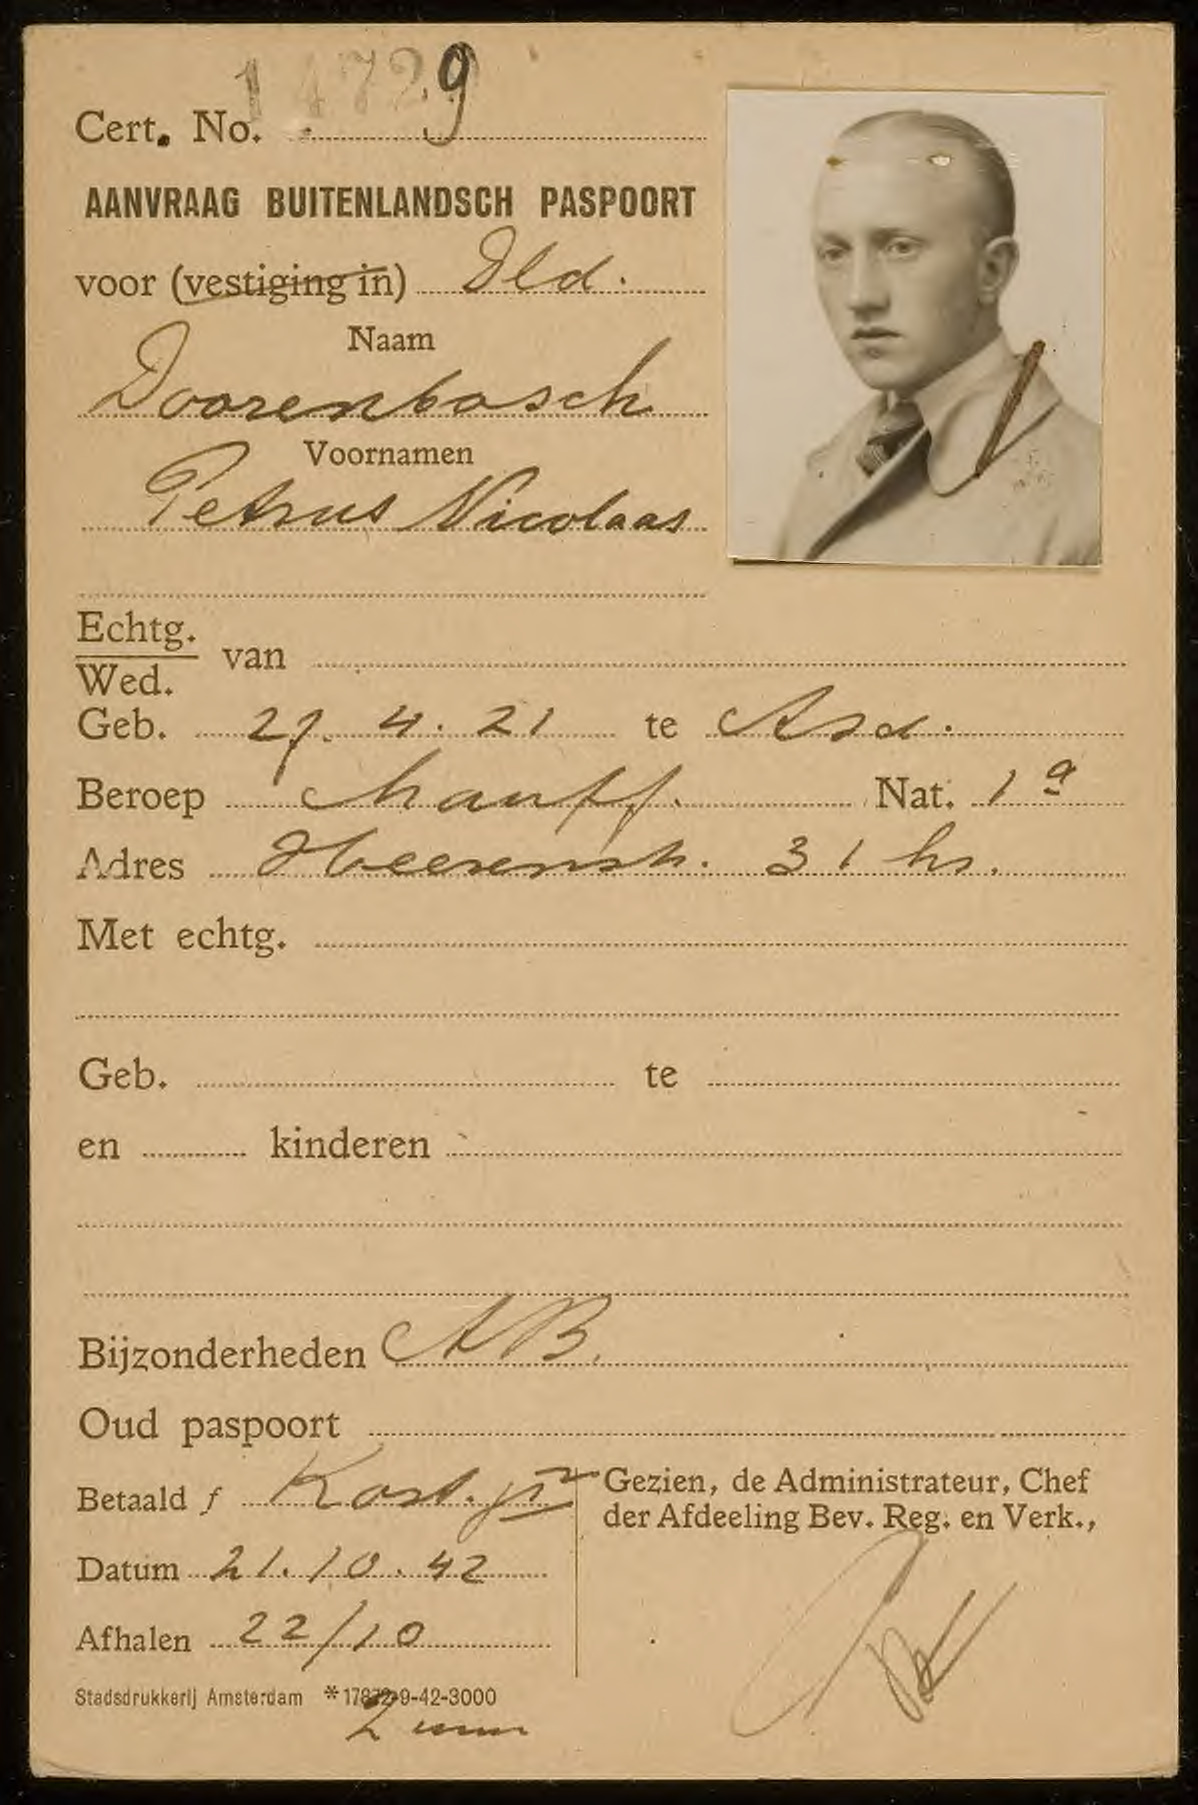 14729
Cert. No.
AANVRAAG BUITENLANDSCH PASPOORT
voor (vestiging in) Dld.
Naam
Doorenbosch
Voornamen
Petrus Nicolaas
Echtg.
Wed. van
Geb. 27. 4. 21 te Asd.
Beroep Chauff. Nat. 1a
Adres Heerenstr. 31 hs.
Met echtg.
Geb. te
en kinderen
Bijzonderheden AB.
Oud paspoort
Betaald f Kost.
Gezien, de Administrateur, Chef
der Afdeeling Bev. Reg. en Verk.,
Datum 21.10.42
Afhalen 22/10
Stadsdrukkerij Amsterdam *17872-9-42-3000
2 uur